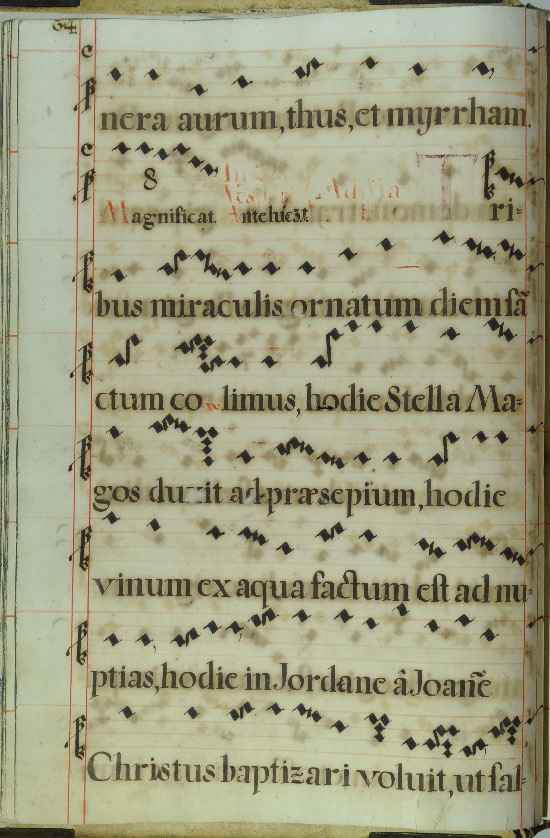 64
nera aurum, thus, et myrrham.
8
Magnificat. Ante
Tri-
bus miraculis ornatum diem sã
ctum colimus, hodie Stella Ma-
gos duxit ad præsepium, hodie
vinum ex aqua factum est ad nu-
ptias, hodie in Jordane â Joañe
Christus baptizari voluit, ut sal-